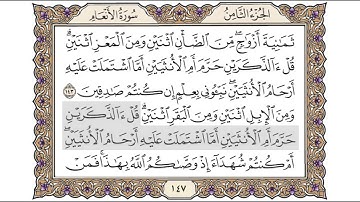 الجزء الثامن
سورة الأنعام
ثَمَٰنِيَةَ أَزْوَٰجٍ ۖ مِّنَ ٱلضَّأْنِ ٱثْنَيْنِ وَمِنَ ٱلْمَعْزِ ٱثْنَيْنِ ۗ
قُلْ ءَآلذَّكَرَيْنِ حَرَّمَ أَمِ ٱلْأُنثَيَيْنِ أَمَّا ٱشْتَمَلَتْ عَلَيْهِ
أَرْحَامُ ٱلْأُنثَيَيْنِ ۖ نَبِّـُٔونِى بِعِلْمٍ إِن كُنتُمْ صَٰدِقِينَ ١٤٣
وَمِنَ ٱلْإِبِلِ ٱثْنَيْنِ وَمِنَ ٱلْبَقَرِ ٱثْنَيْنِ ۗ قُلْ ءَآلذَّكَرَيْنِ
حَرَّمَ أَمِ ٱلْأُنثَيَيْنِ أَمَّا ٱشْتَمَلَتْ عَلَيْهِ أَرْحَامُ ٱلْأُنثَيَيْنِ ۖ
أَمْ كُنتُمْ شُهَدَآءَ إِذْ وَصَّىٰكُمُ ٱللَّهُ بِهَٰذَا ۚ فَمَنْ
١٤٧